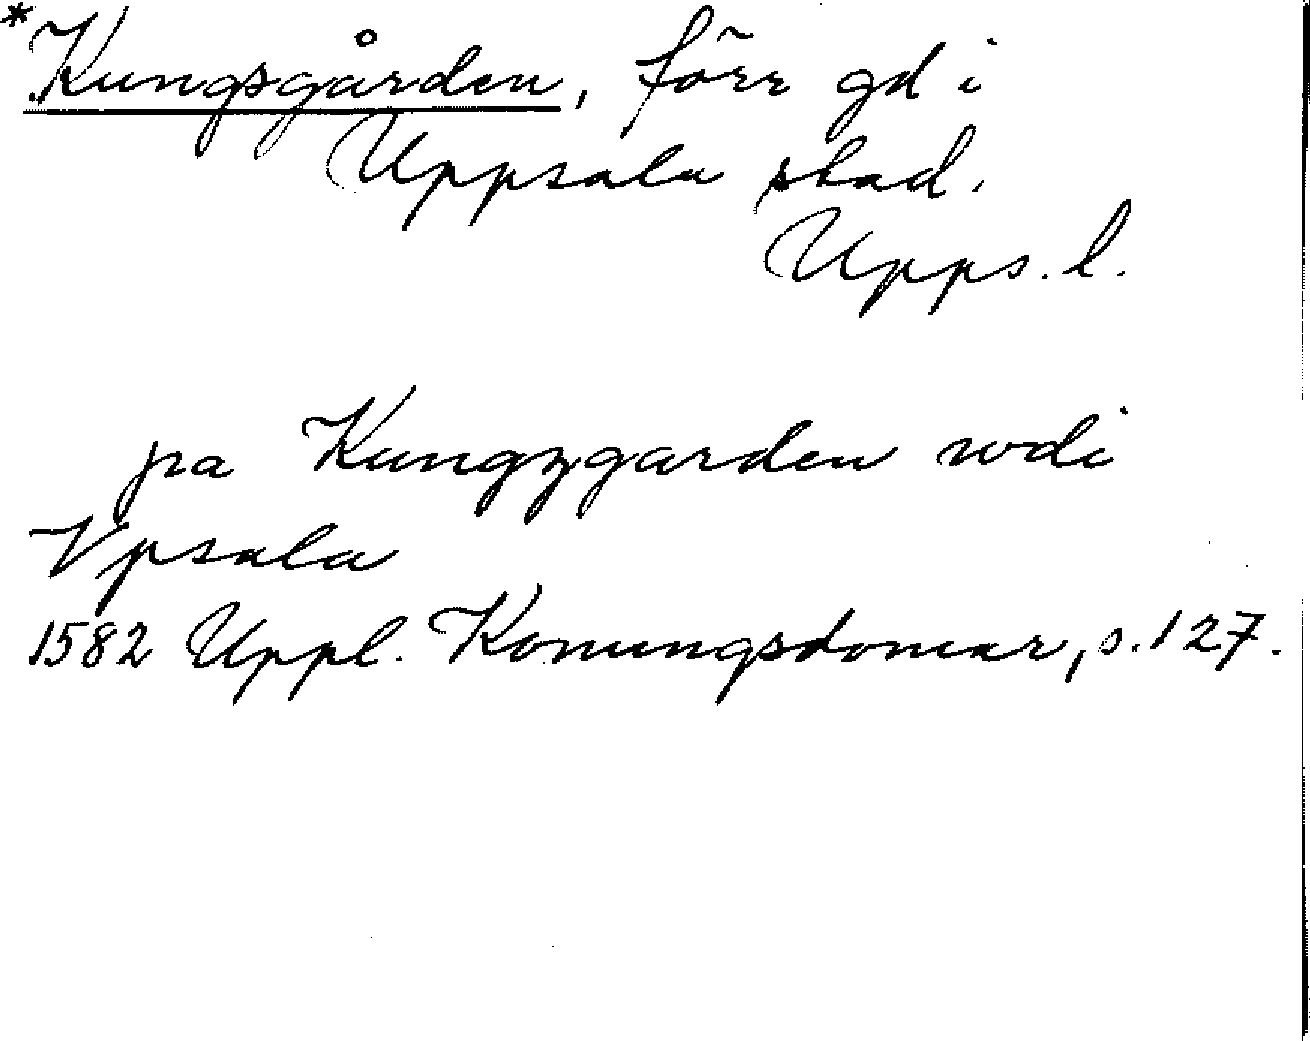 *Kungsgården, förr gd i
Uppsala stad.
Upps. l.
pa Kungzgarden wdi
Vpsala
1582 Uppl. Konungsdomar, s. 127.